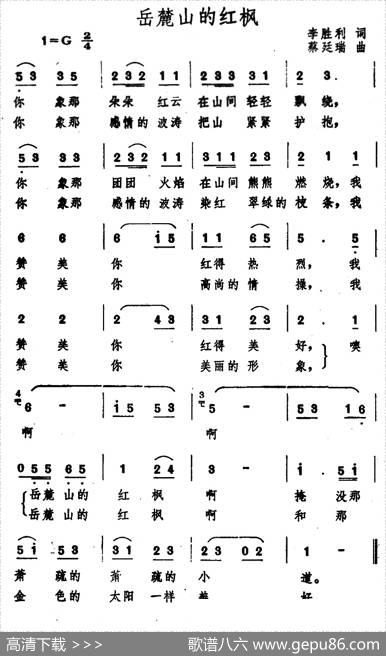 岳麓山的红枫
1=G 2/4
李胜利 词
蔡廷瑞 曲
5 3 3 5 | 2 3 2 1 1 | 2 3 3 3 3 | 2 3. |
你 象那 朵朵 红云 在山间 轻轻 飘绕,
你 象那 感情的 波涛 把山 紧紧 护抱,
5 3 3 3 | 2 3 2 1 1 | 3 1 1 2 3 | 2 1 1 |
你 象那 团团 火焰 在山间 熊熊 燃烧,我
你 象那 感情的 波涛 染红 翠绿的 枝条,我
6 6 | 6 i 5 | 1 1 6 5 | 5 . 5 |
赞 美 你 红得 热 烈, 我
赞 美 你 高尚的 情 操, 我
2 2 | 2 4 3 | 3 1 2 3 | 2 . 1 |
赞 美 你 红得 美 好, 噢
赞 美 你 美丽的 形 象,
4 6 - | i 5 5 3 | 3 5 - | 5 3 1 6 |
啊 啊
0 5 5 6 5 | 1 2 4 | 3 - | i . 5 i |
岳麓 山的 红 枫 啊 掩 没那
岳麓 山的 红 枫 啊 和 那
5 i 5 3 | 3 1 2 3 | 2 3 0 2 | 1 - |
萧 疏的 萧 疏的 小 道。
金 色的 太阳 一样 美 好
高清下载 >>>
歌谱八六 www.gepu86.com